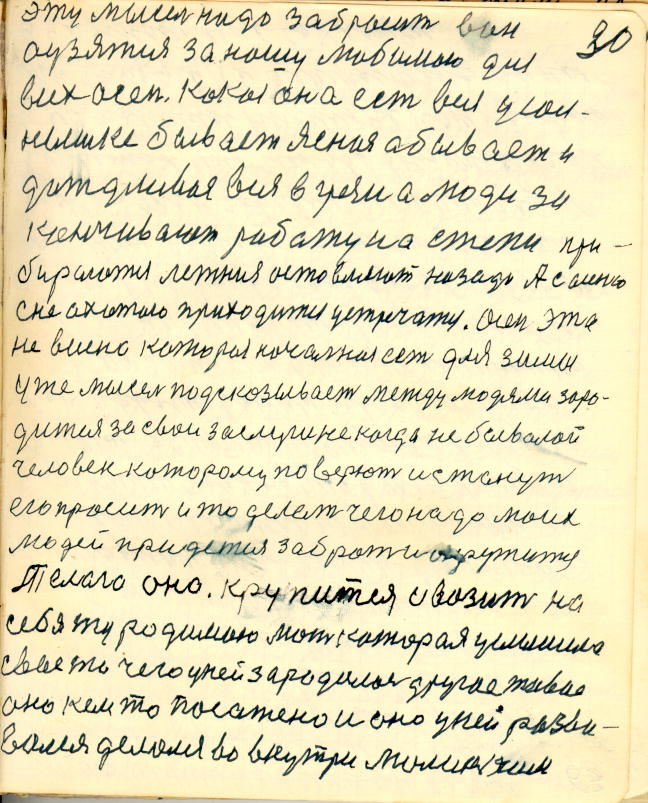 30
эту мысел надо забросит вон
отзятия за ношу любимою для
всих осен. Какой она ест вся
бывает ясная а бывает и
дождливая вся в грязи а люди за
кончивают работу на степи при-
бираются летния оставляют назадь А с осеню
с не охотою приходится устречати. Осен эта
не висна которая началная ест для зимы
уже мысел подсказывает между людями заро-
дится за свои заслуги не когда не бывалой
человек которому поверют и станут
его просит и то делат чего надо моих
людей придется забрати
Телаго оно. Крупится и возит на
себя ту родимою мат которая услышила
свое то чего у ней зародилос другое живое
оно кем то посажено и оно у ней разви-
волся делоля во внутри